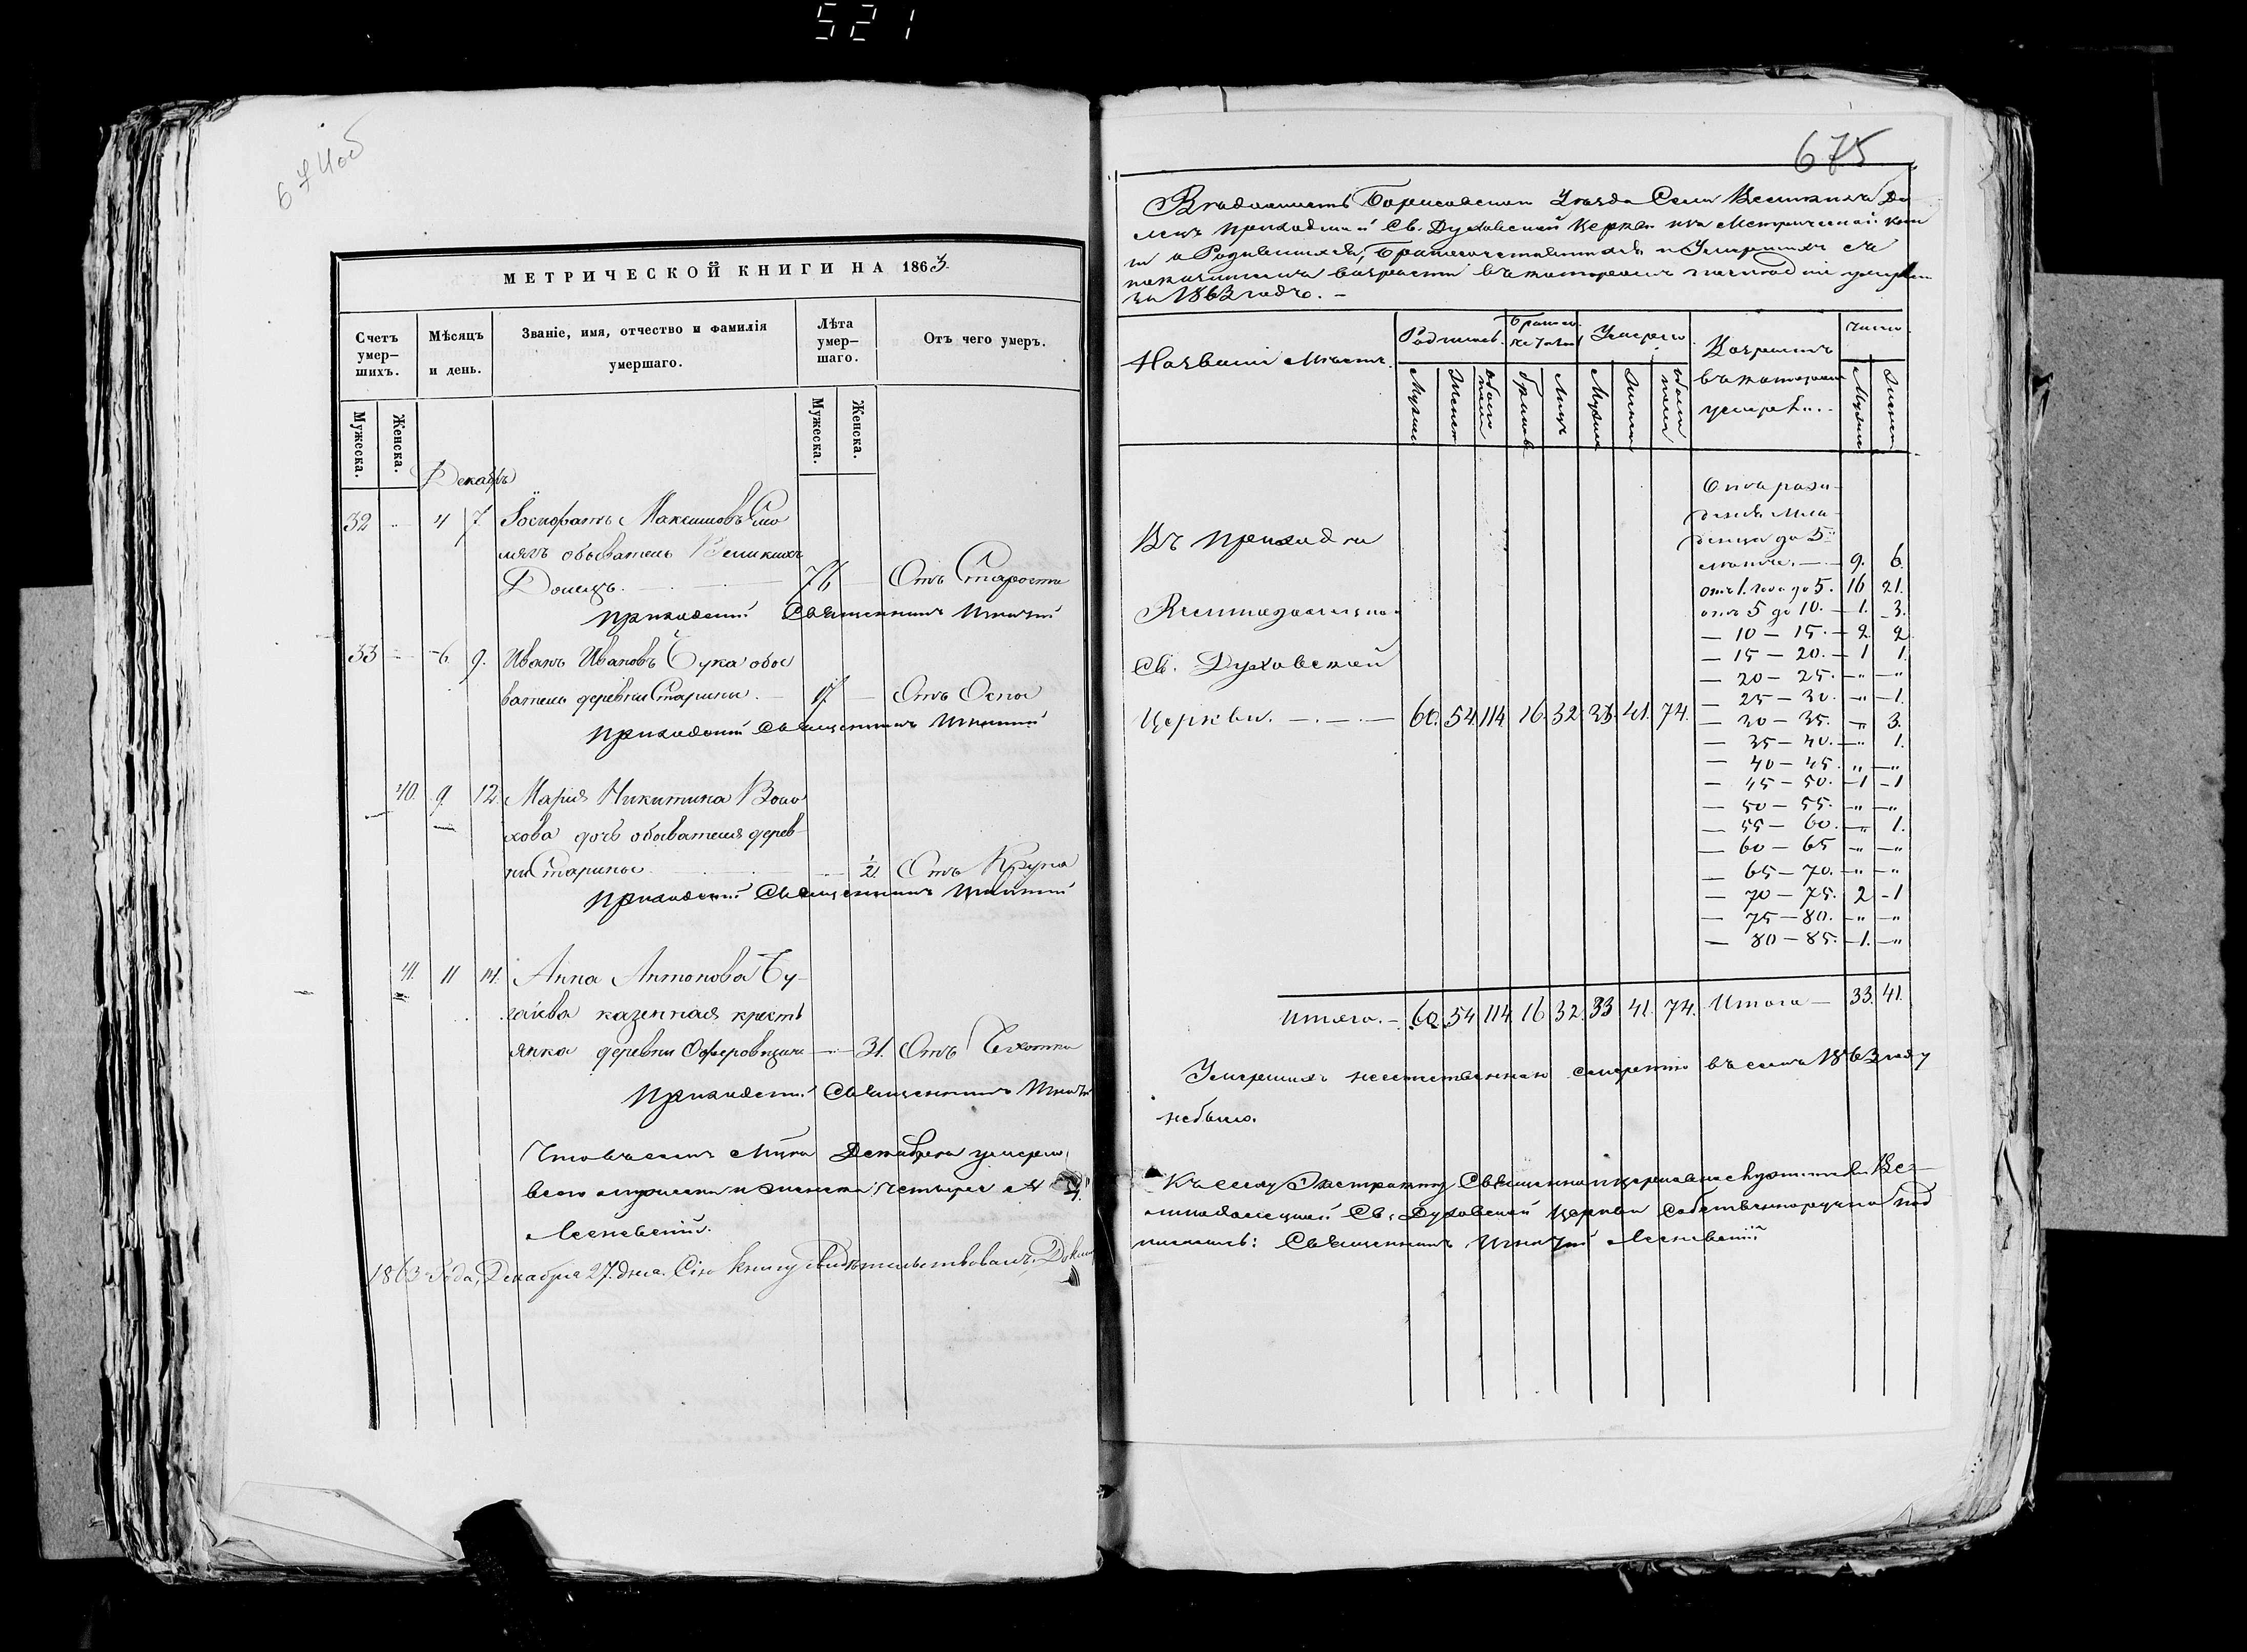 521
674об
МЕТРИЧЕСКОЙ КНИГИ НА 1863.
Счетъ умер-
шихъ.
Мѣсяцъ
и день.
Званіе, имя, отчество и фамилія
умершаго.
Лѣта
умер-
шаго.
Отъ чего умеръ.
Мужеска.
Женска.
Мужеска.
Женска.
Декабрь
32 " 4 7. Іосифатъ Максимовъ
обыватель Великихъ
Долецъ. 76 — Отъ Старости
Приходскій Священникъ Игнатій
33 — 6. 9. Иванъ Ивановъ Бука обы
ватель деревни Старины. — 17. — Отъ Оспы
Приходскій Священникъ Игнатій
40. 9 12. Марія Никитина Воло
хова дочь обывателя дерев-
ни Старины 1/2 Отъ Крупа
Приходскій Священникъ Игнатій
41. 11 14. Анна Антонова Бу-
казенная кресть
янка деревни — 31. Отъ Чахотки
Приходскій Священникъ Игнатій
Что въ семъ Мѣсяцѣ Декабрѣ умерло
всего мужеска и женска четыре
Лисневскій.
1863 Года, Декабря 27. дня. Сію книгу свидѣтельствовалъ,
675
Вѣдомость Борисовскаго Уѣзда Села Великихъ До
лецъ приходской Св. Духовской Церкви изъ Метрической кни
ги о Родившихся, Бракосочетавшихся и Умершихъ съ
показаніемъ возраста въ которомъ послѣдніе умерли
за 1863 годъ. –
Названіе Мѣстъ.
Родилось.
Умерло.
Возрастъ
въ которомъ
умерли.
Число
Мужеск
Женск
обоего
пола
Браковъ
Лицъ
Мужеск
Женск
обоего
пола
Мужеск
Женск
Въ приходѣ
Великодолецкой
Св. Духовской
Церкви. — . — . — 60. 54. 114. 16. 32. 33. 41. 74.
Отъ рож-
денія мла-
денца до 5
9. 6.
отъ 1. года до 5. 16 21.
отъ 5 до 10. — 1. 3.
— 10 — 15. — 2. 2.
— 15 — 20. — 1 1.
— 20 — 25. — " — "
— 25 — 30. — " — 1.
— 30 — 35. — " 3.
— 35 — 40. — " 1.
— 40 — 45. " — "
— 45 — 50. — 1 — 1
— 50 — 55. — " — "
— 55 — 60. — " 1.
— 60 — 65 — " — "
— 65 — 70. — " — "
— 70 — 75. 2 — 1
— 75 — 80. — " — "
— 80 — 85. — 1. — "
Итого. — 60. 54. 114. 16. 32. 33 41. 74. Итого — 33. 41.
Умершихъ неестественною смертію въ семъ 1863 году
небыло.
Къ сему Экстракту Священно и церковнослужители Ве-
ликодолецкой Св. Духовской Церкви собственноручно под
писались: Священникъ Игнатій Лисневскій